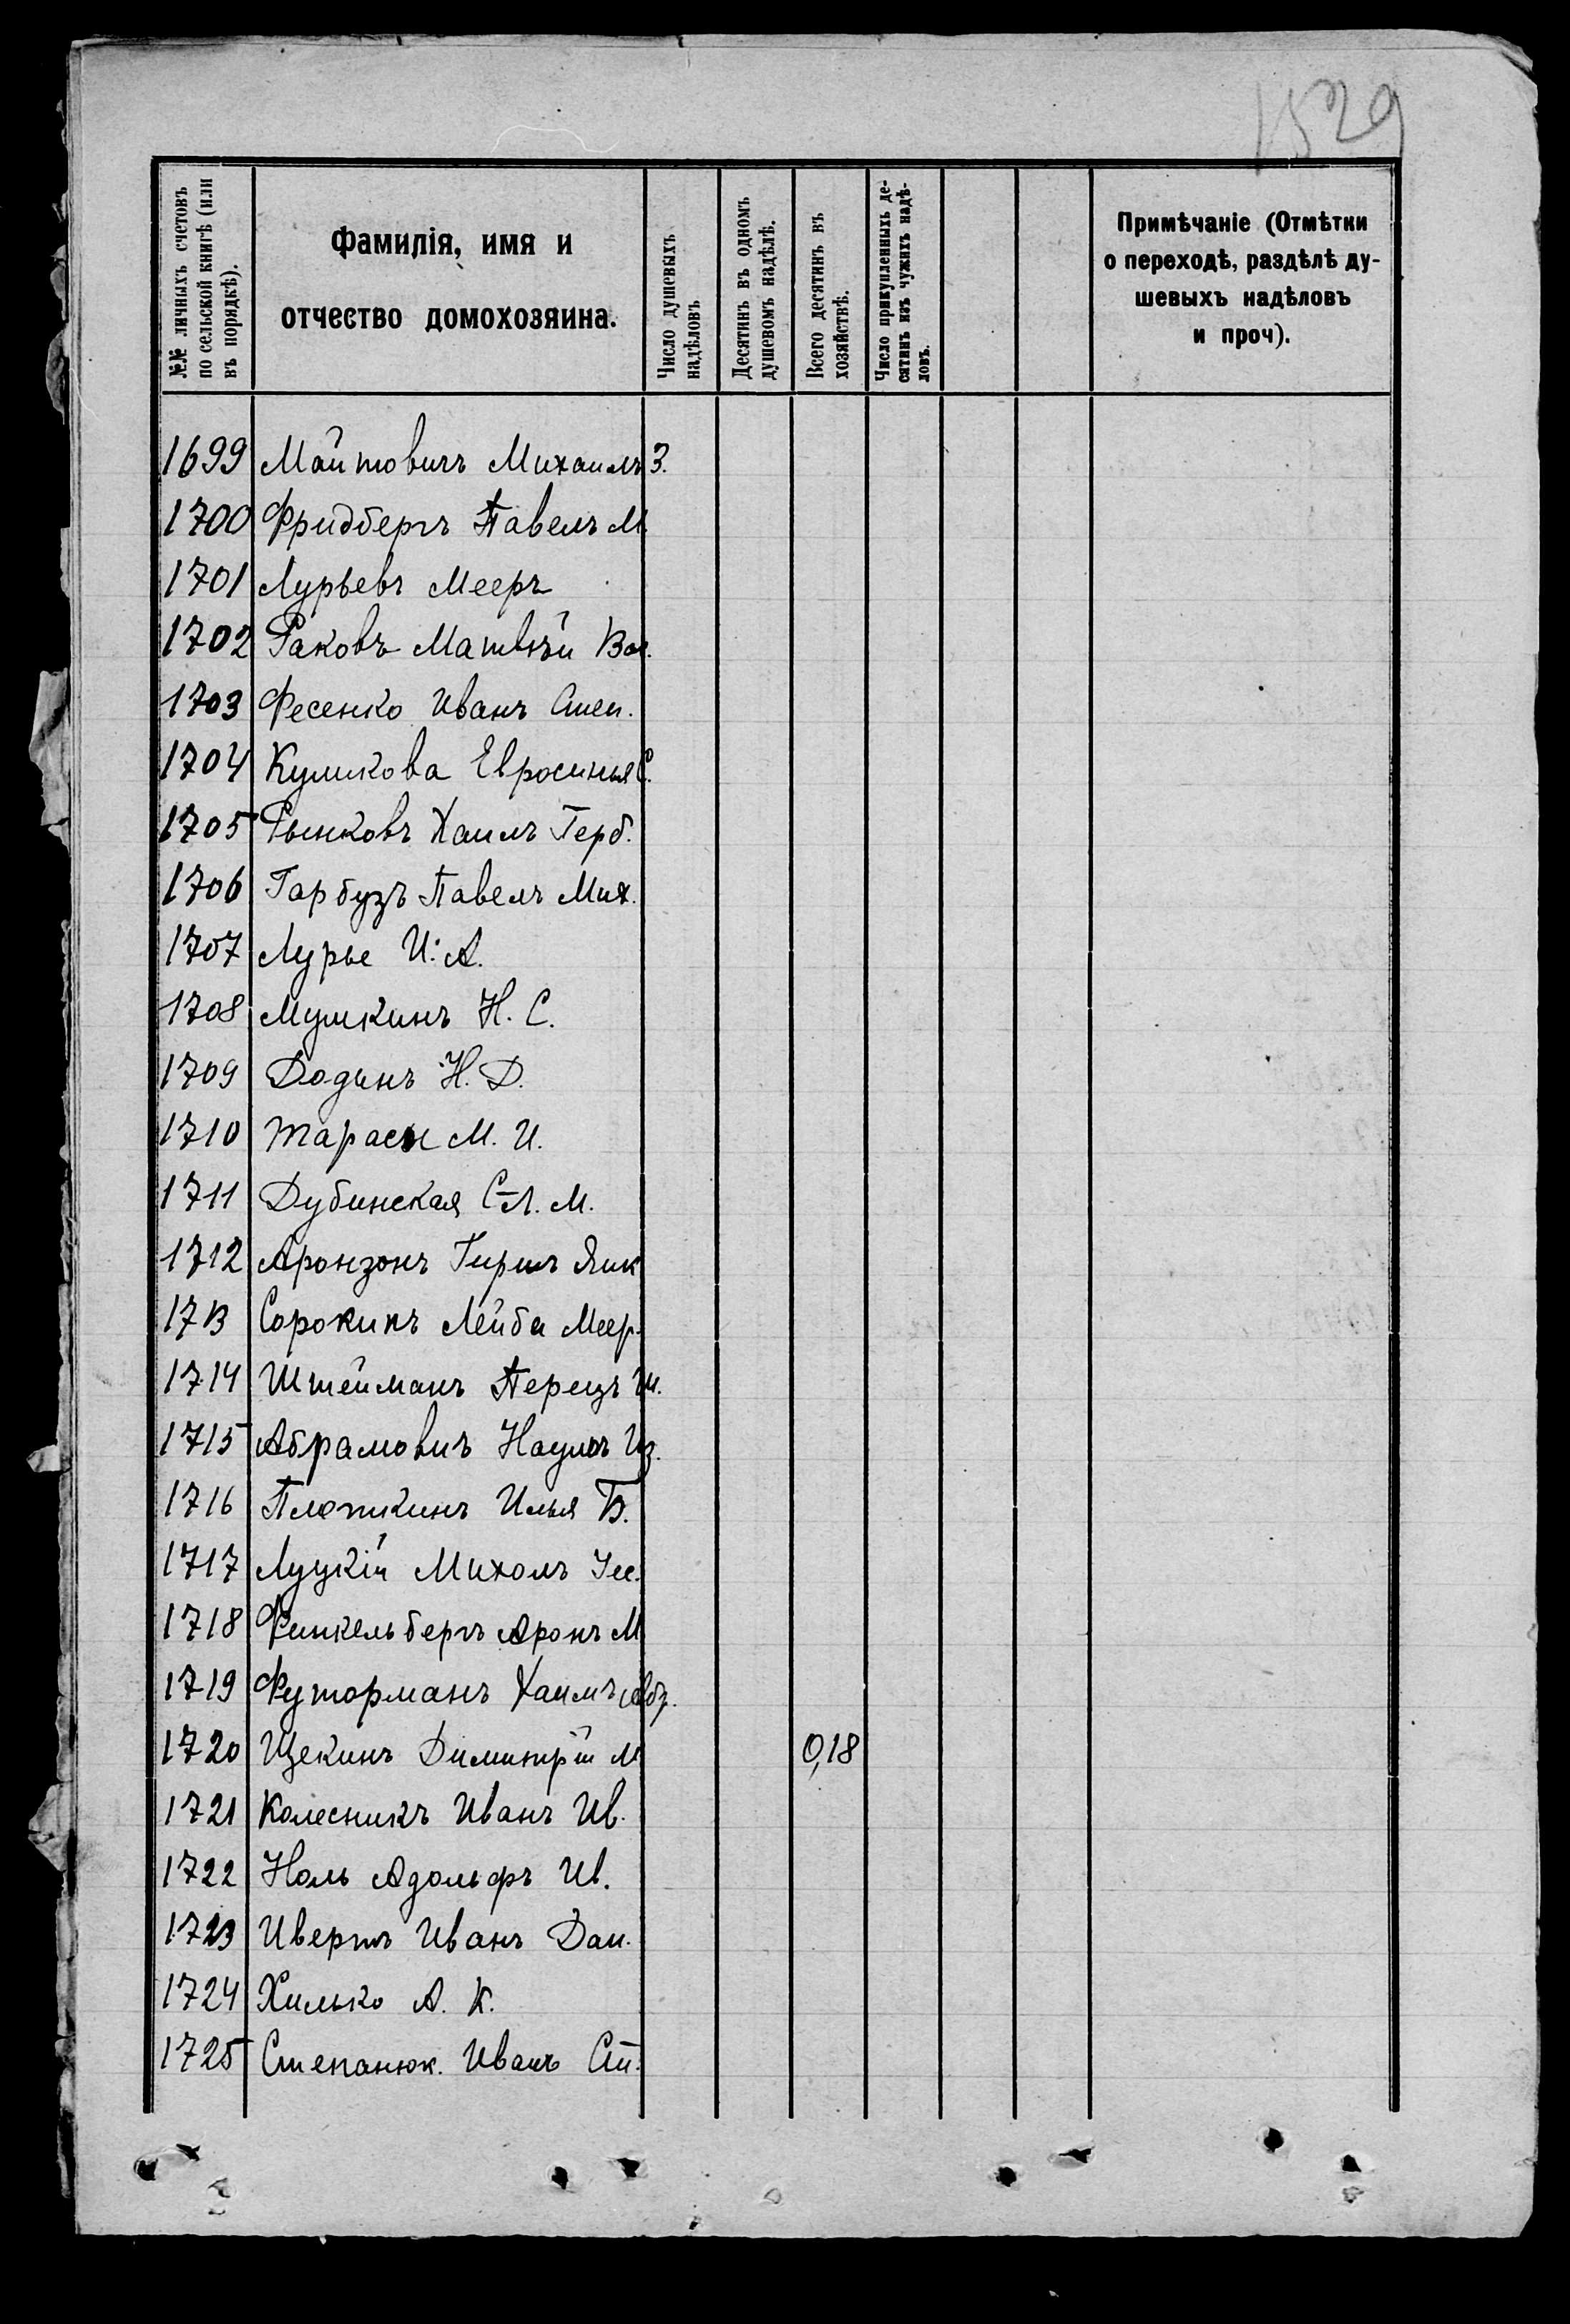 1529
№№ личныхъ счетовъ
по сельской книгѣ (или
въ порядкѣ).
Фамилія, имя и
отчество домохозяина.
Число душевыхъ
надѣловъ
Десятинъ въ одномъ
душевомъ надѣлѣ.
Всего десятинъ въ
хозяйствѣ.
Число прикупленныхъ де-
сятинъ изъ чужихъ надѣ-
ловъ.
Примѣчаніе (Отмѣтки
о переходѣ, раздѣлѣ ду-
шевыхъ надѣловъ
и проч).
1699 Майтовичъ Михаилъ З.
1700 Фридбергъ Павелъ М.
1701 Лурьевъ Мееръ
1702 Раковъ Матвѣй Вас.
1703 Фесенко Иванъ Степ.
1704 Куликова Евросинья С.
1705 Рынковъ Хаимъ Герб.
1706 Гарбузъ Павелъ Мих.
1707 Лурье И. А.
1708 Мушкинъ Н. С.
1709 Додинъ Н. Д.
1710 Тарасы М. И.
1711 Дубинская С-Л. М.
1712 Аронзонъ Гиршъ Янк
1713 Сорокинъ Лейба Меер.
1714 Штейманъ Перецъ Ш.
1715 Абрамовичъ Наумъ Из.
1716 Плоткинъ Илья Б.
1717 Луцкій Михолъ
1718 Финкельбергъ Аронъ М
1719 Футорманъ Хаимъ Абр.
1720 Щекинъ Димитрій М 0,18
1721 Колесникъ Иванъ Ив.
1722 Ноль Адольфъ Ив.
1723 Ивертъ Иванъ Дан.
1724 Хилько А. К.
1725 Степанюк. Иванъ Ст.